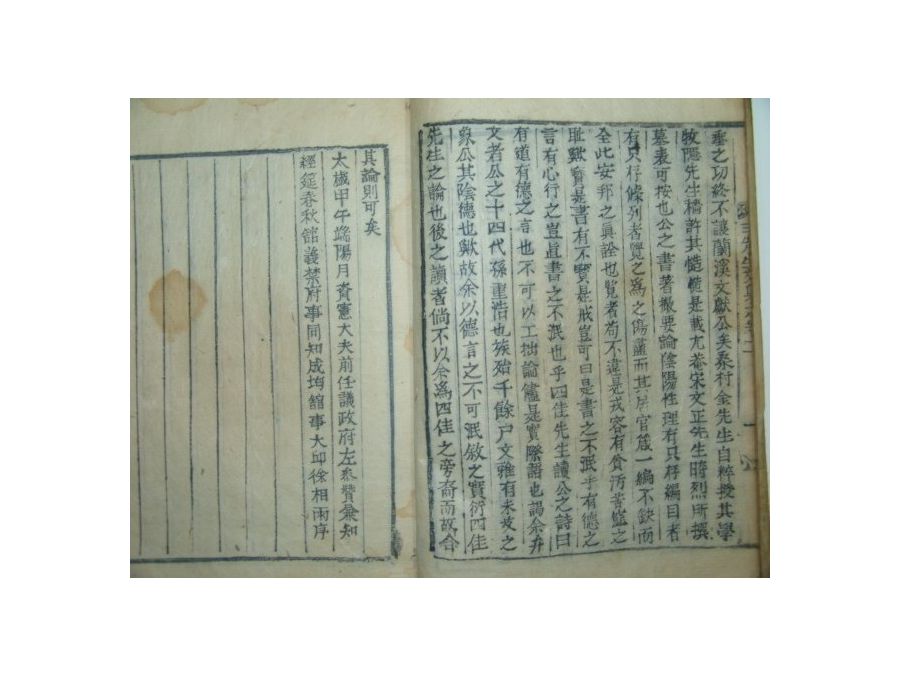 垂之功終不讓蘭溪文獻公矣泰村金先生自粹授其學
牧隱先生穡許其 是載尤菴宋文正先生時烈所撰
墓表可按也公之書著撮要論陰陽性理有只存編目者
有只存條列者覽之爲之傷盡而其居官箴一編不缺而
全此安邦之眞詮也覽者苟不違是戒容有貪汚苦 之
耻歟賢是書有不賢是戒豈可曰是書之不泯乎有德之
言有心行之豈直書之不泯也乎四佳先生讀公之詩曰
有道有德之言也不可以工拙論儘是實際語也謁余弁
文者公之十四代孫重浩也族殆千餘戶文雅有未艾之
象公其陰德也歟故余以德言之不可泯敘之實衍四佳
先生之論也後之讀者倘不以余爲四佳之旁裔而故合
其論則可矣
太歲甲午端陽月資憲大夫前任議政府左參贊兼知
經筵春秋館義禁府事同知成均館事大邱徐相雨序